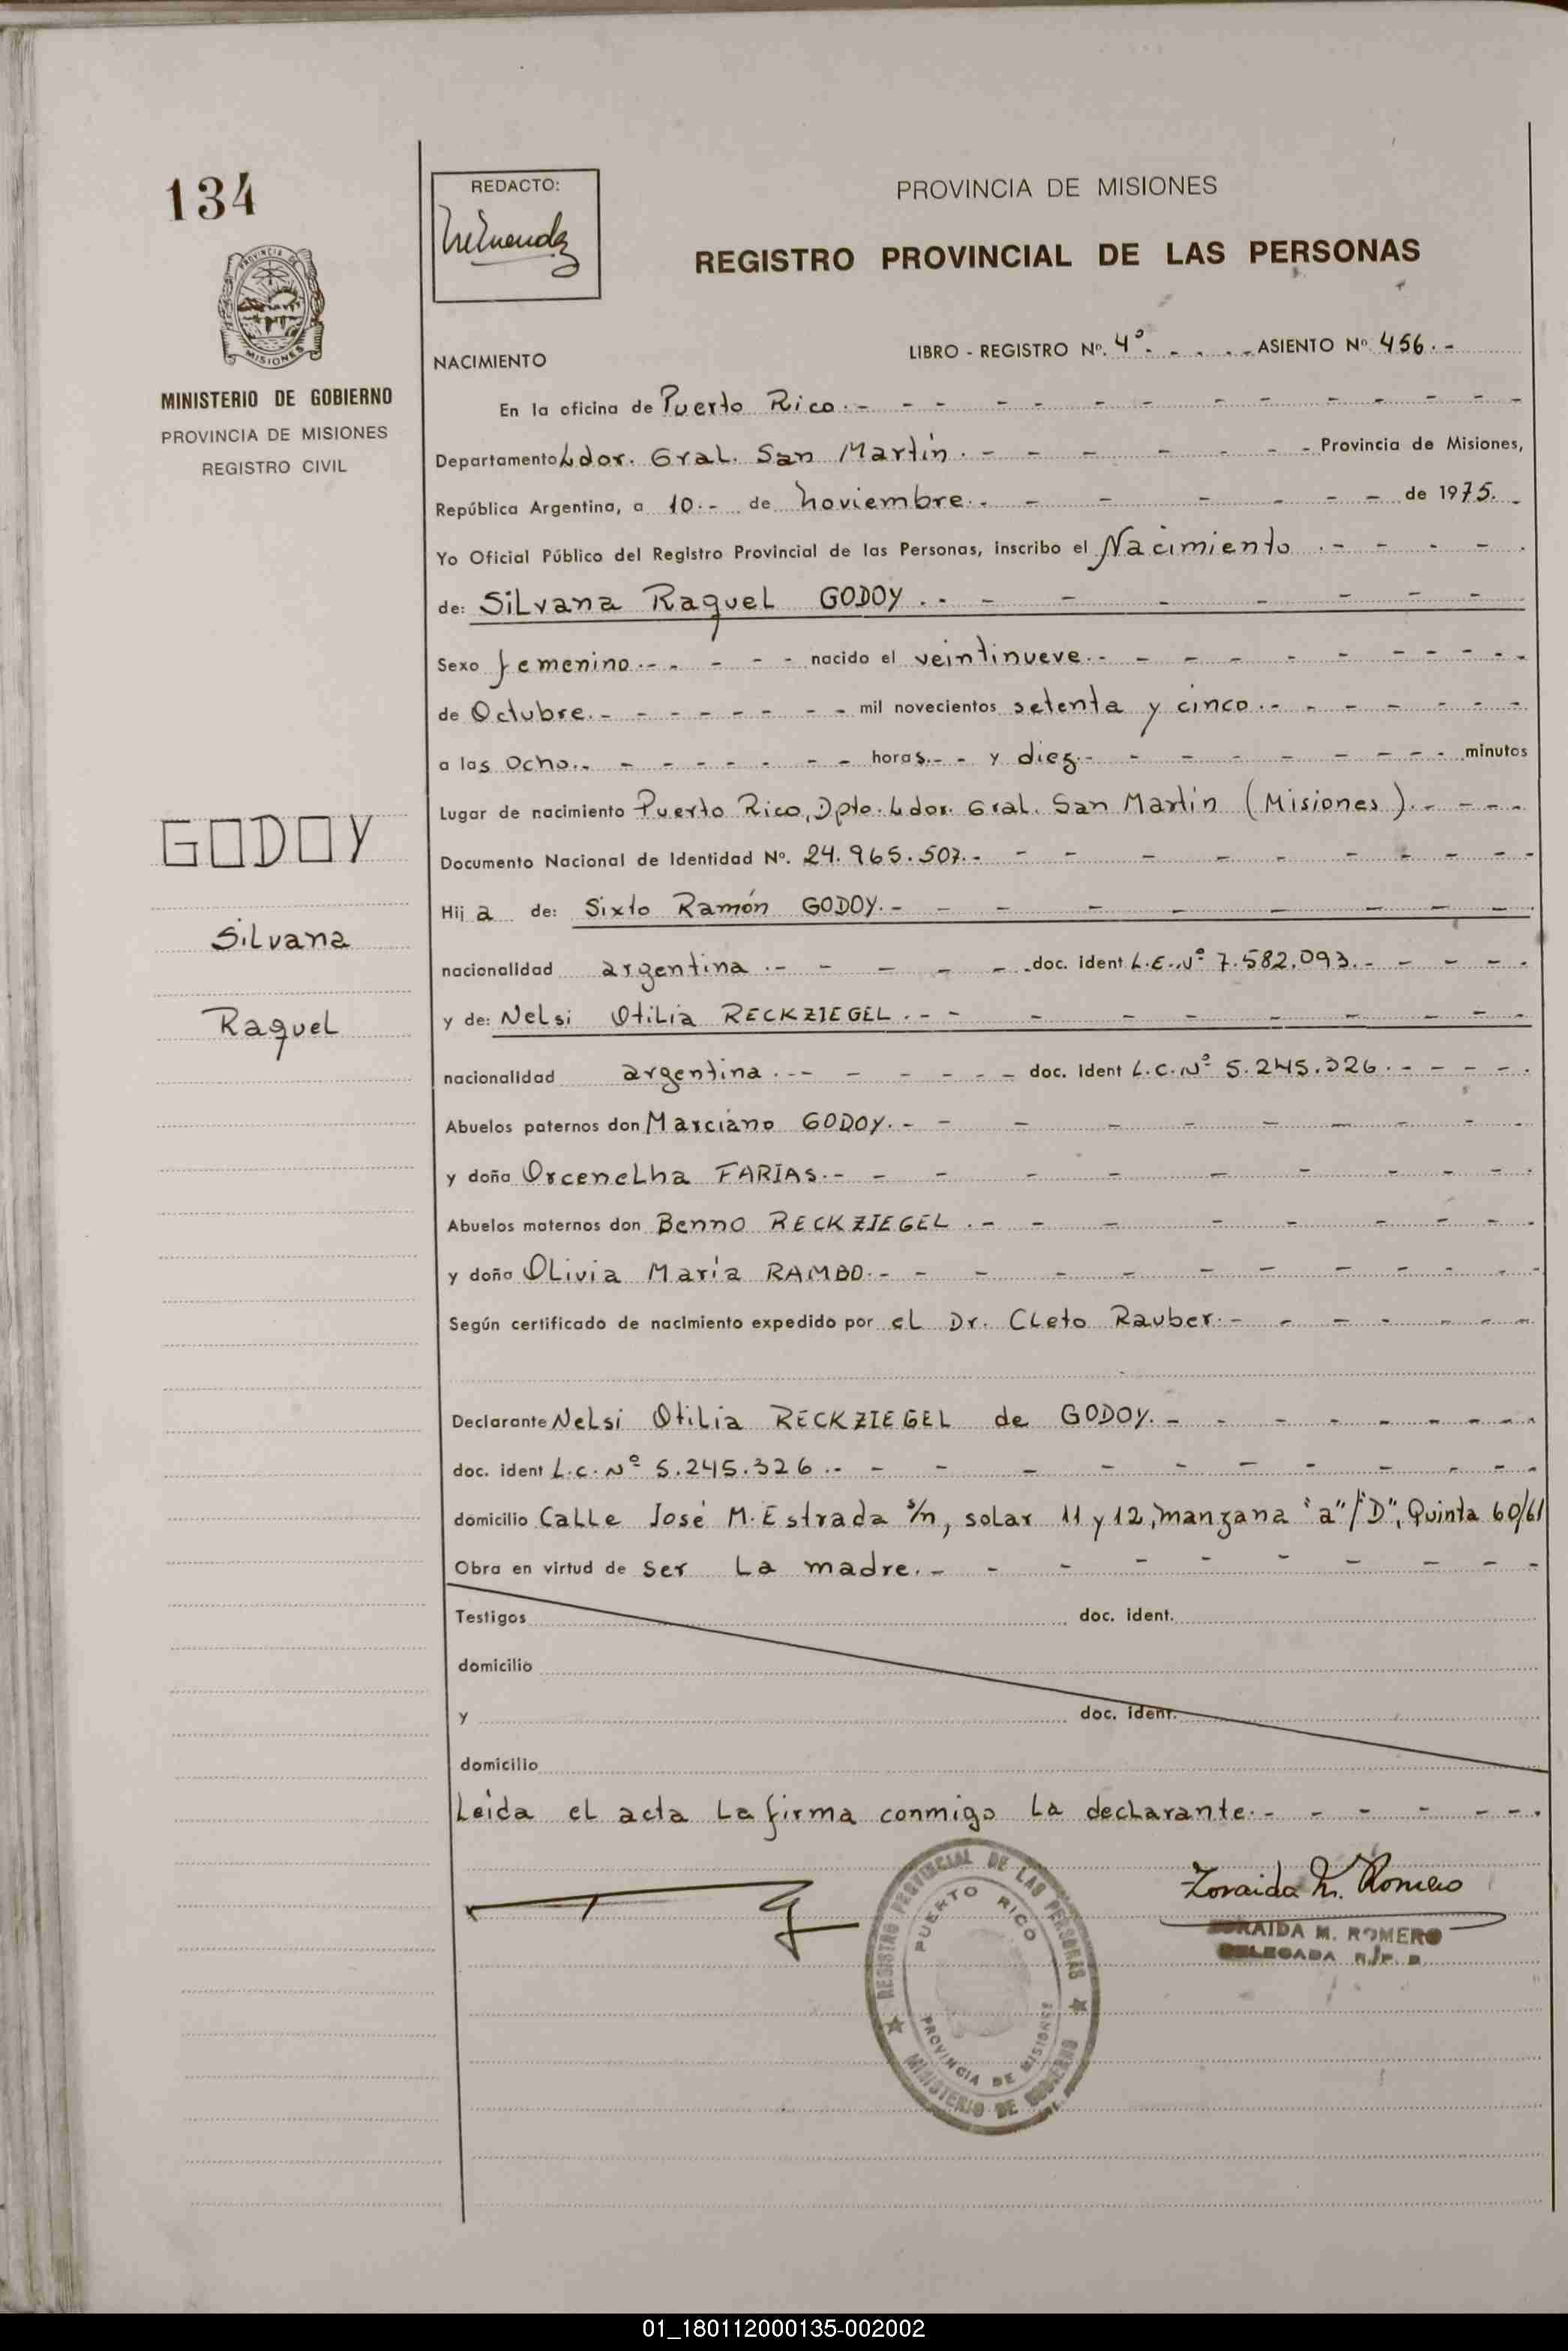 134
PROVINCIA DE
MISIONES
MINISTERIO DE GOBIERNO
PROVINCIA DE MISIONES
REGISTRO CIVIL
GODOY
Silvana
Raquel
REDACTO:
PROVINCIA DE MISIONES
REGISTRO PROVINCIAL DE LAS PERSONAS
NACIMIENTO
LIBRO - REGISTRO Nº. 4º. - - . - ASIENTO Nº 456. -
En la oficina de Puerto Rico. -
Departamento Ldor. Gral. San Martín. - Provincia de Misiones,
República Argentina, a 10. - de noviembre. - de 1975. -
Yo Oficial Público del Registro Provincial de las Personas, inscribo el Nacimiento . -
de: Silvana Raquel GODOY . -
Sexo femenino. - nacido el veintinueve. -
de Octubre. - mil novecientos setenta y cinco. -
a las Ocho. - horas. - y diez. - minutos
Lugar de nacimiento Puerto Rico, Dpto. Ldor. Gral. San Martín (Misiones). -
Documento Nacional de Identidad Nº. 24.965.507. -
Hij a de: Sixto Ramón GODOY. -
nacionalidad argentina . - doc. ident L.E. Nº 7.582.093. -
y de: Nelsi Otilia RECKZIEGEL . -
nacionalidad argentina . - doc. Ident L.C. Nº 5.245.326. -
Abuelos paternos don Marciano GODOY. -
y doña Orcenelha FARIAS. -
Abuelos maternos don Benno RECKZIEGEL . -
y doña Olivia María RAMBO. -
Según certificado de nacimiento expedido por el Dr. Cleto Rauber. -
Declarante Nelsi Otilia RECKZIEGEL de GODOY. -
doc. ident L.C. Nº 5.245.326 . -
domicilio Calle José M. Estrada s/n, solar 11 y 12, manzana "a"/"D", Quinta 60/61
Obra en virtud de ser la madre. -
Testigos doc. ident.
domicilio
y doc. ident.
domicilio
Leída el acta la firma conmigo la declarante. -
REGISTRO PROVINCIAL DE LAS PERSONAS
PUERTO RICO
PROVINCIA DE MISIONES
MINISTERIO DE GOBIERNO
Zoraida M. Romero
ZORAIDA M. ROMERO
DELEGADA R.P.P.
01_180112000135-002002